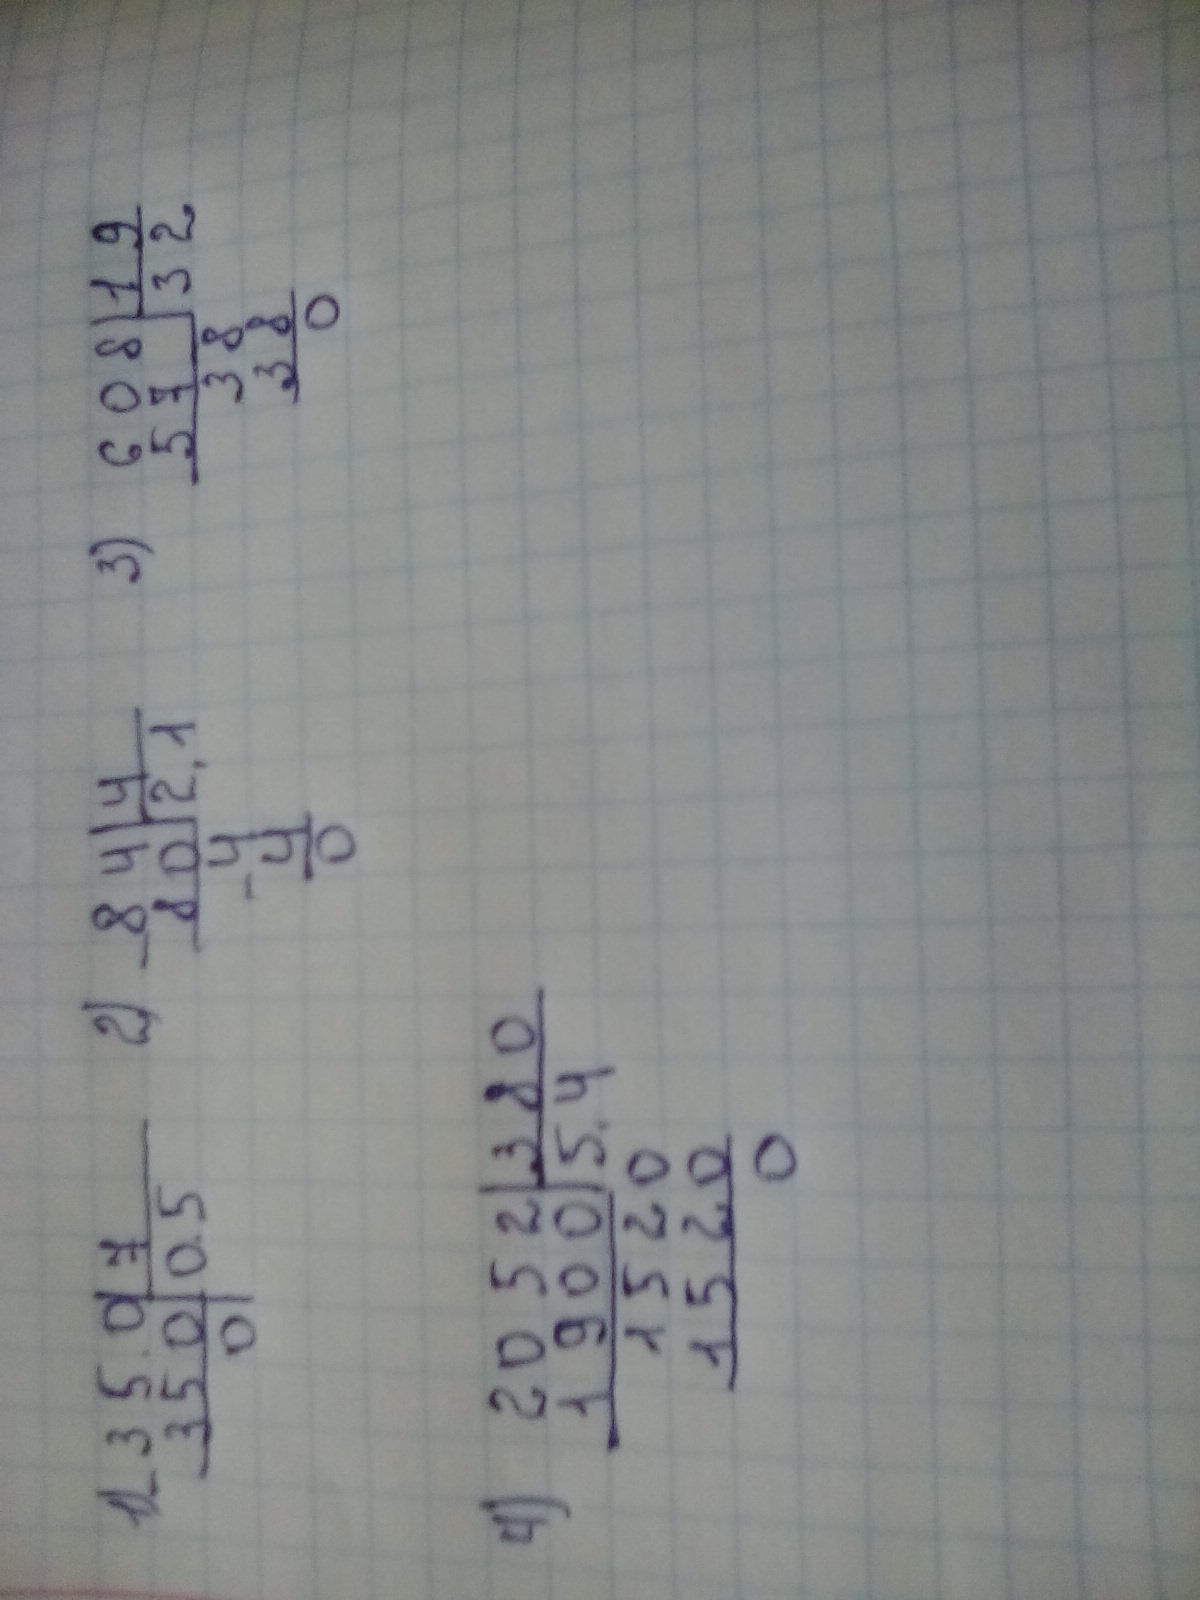 1) 35.0 7 2) 84 4 3) 608 19
350 0.5 80 2,1 57 32
0 4 38
-4 38
0 0
4) 2052 380
1900 5.4
1520
1520
0